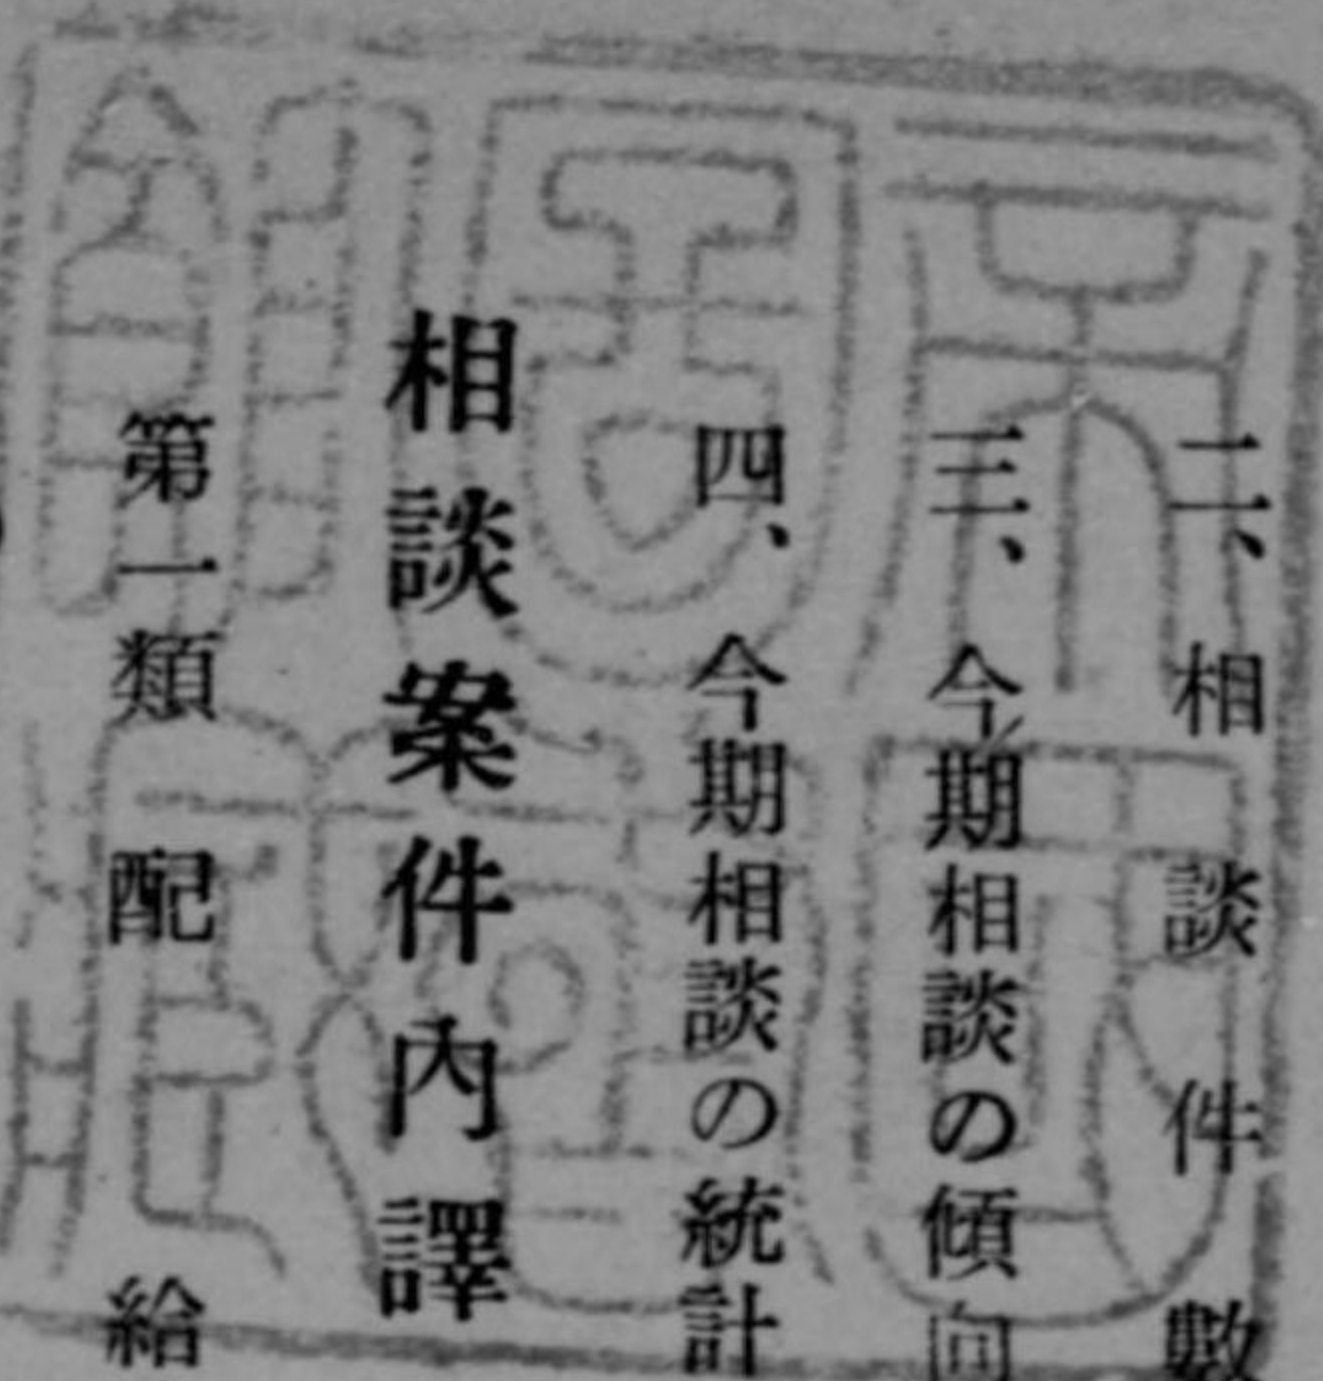 二、相談件數
三、今期相談の傾向
四、今期相談の統計
相談案件內譯
第一類配給